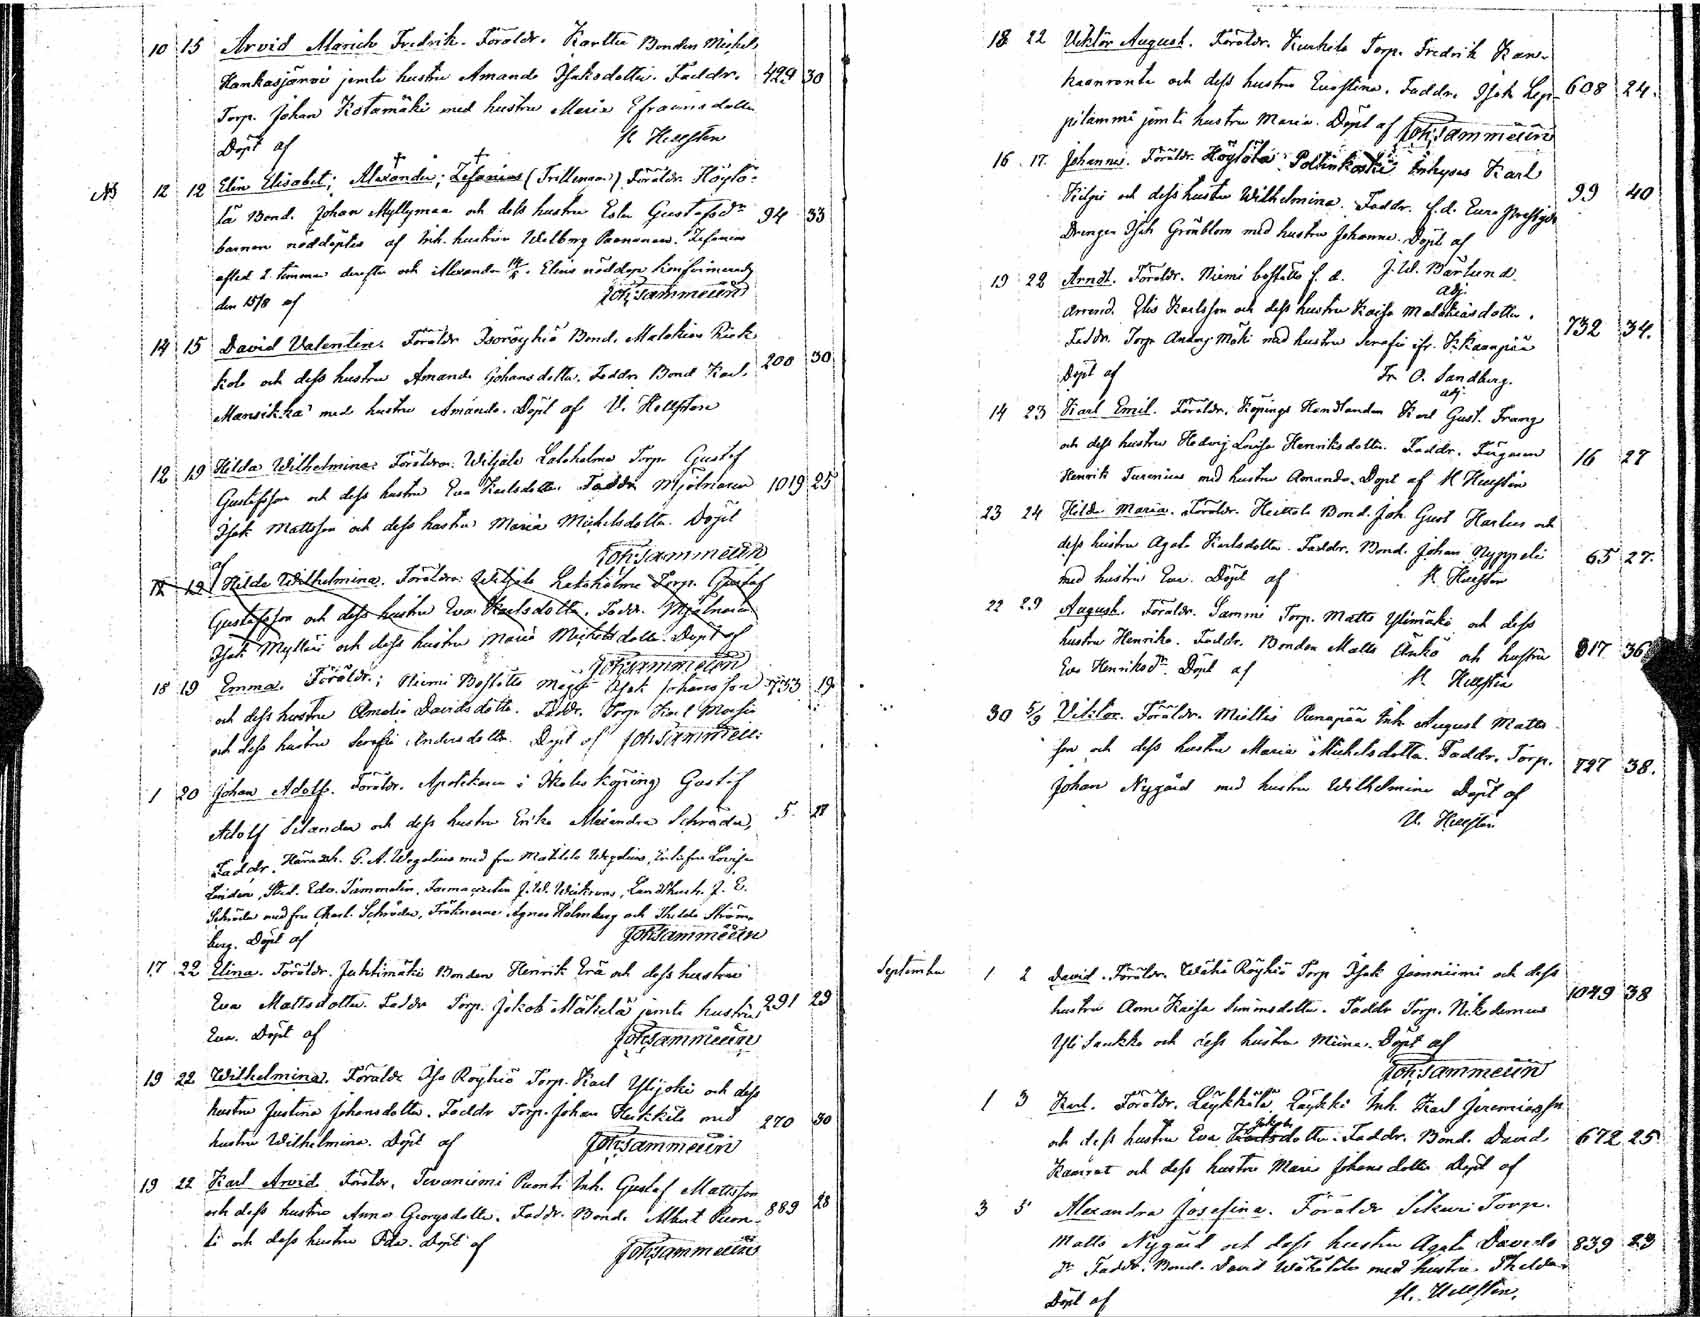 10 15 Arvid Marich Fredrik. Föräldr. Karttu Bonden Michel
Hankasjärvi jemte hustru Amanda Isaksdotter. Faddr. 429 30
Torp. Johan Kotamäki med hustru Maria Efraimsdotter
Döpt af K Hellsten
NB 12 12 Elin Elisabet; Alexander; Zefanias (Trillingar) Föräldr. Höylö-
lä Bond. Johan Myllymaa och dess hustru Ester Gustafsdr 94 33
barnen nöddöptes af Inh. hustrun Walborg Paananen. Zefanias
afled 2 timmar derefter och Alexander 14/8. Elins nöddop konfirmerades
den 15/8 af Joh: Sammelin
14 15 David Valentin. Föräldr Isoröyhiö Bond. Malakias Riek
kola och dess hustru Amanda Johansdotter. Faddr. Bond Karl 200 30
Mansikka med hustru Amanda. Döpt af V. Hellsten
12 19 Hilda Wilhelmina. Föräldrar. Witjala Laksholma Torp. Gustaf
Gustafsson och dess hustru Eva Karlsdotter. Faddr. Mjölnaren 1019 25
Isak Mattsson och dess hustru Maria Michelsdotter. Döpt
af Joh: Sammelin
12 19 Hilda Wilhelmina. Föräldrar: Witjala Laksholma Torp. Gustaf
Gustafsson och dess hustru Eva Karlsdotter. Faddr. Mjölnaren
Isak Mylläri och dess hustru Maria Michelsdotter. Döpt af
Joh: Sammelin
18 19 Emma. Föräldr.; Niemi Boställe Isak Johansson 733 19.
och dess hustru Amalia Davidsdotter. Faddr. Torp. Karl
och dess hustru Serafia Andersdotter. Döpt af Joh: Sammelin
1 20 Johan Adolf. Föräldr. Apotekaren i Ikalis köping Gustaf
Adolf Selander och dess hustru Erika Alexandra Schröder, 5 27
Faddr. Häradsh. G. A. Wegelius med fru Matilda Wegelius, Enkefru Lovisa
Linden, Stud. Edv. Tamenelin, Farmaceuten J. W. , Landtbruk. J. E.
Schröder med fru Charl. Schröder, Fröknarna Agnes Holmberg och Thilda Ström-
berg. Döpt af Joh: Sammelin
17 22 Elina. Föräldr. Juhtimäki Bonden Henrik Erä och dess hustru
Eva Mattsdotter. Faddr Torp. Jakob Mäkelä jemte hustru 291 29
Eva. Döpt af Joh: Sammelin
19 22 Wilhelmina. Föräldr Iso Röyhiö Torp. Karl Ylijoki och dess
hustru Justina Johansdotter. Faddr Torp. Johan Heikkilä med 270 30
hustru Wilhelmina. Döpt af Joh: Sammelin
19 22 Karl Arvid Föräldr. Tevaniemi Puonti Inh. Gustaf Mattsson
och dess hustru Anna Georgsdotter. Faddr. Bond. Albert Puon- 889 28
ti och dess hustru Ida. Döpt af Joh: Sammelin
18 22 Viktor August. Föräldr. Kurkela Torp. Fredrik Kan-
kaanranta och dess hustru Eufstina. Faddr. Isak Lep- 608 24.
pilammi jemte hustru Maria. Döpt af Joh: Sammelin
16 17. Johannes. Föräldr. Höylölä Poltinkoski Inhyses Karl
Kilpi och dess hustru Wilhelmina. Faddr. f.d. 99 40
Drängen Isak Grönblom med hustru Johanna. Döpt af
J. W. Bärlund
adj.
19 22 Arndt. Föräldr. Niemi boställe f. d.
Arrend. Elis Karlsson och dess hustru Kaisa Malakiasdotter. 732 34.
Faddr. Torp. Mäki med hustru Serafia ifr. Kankaanpää
Döpt af Fr. O. Sandberg.
adj.
14 23 Karl Emil. Föräldr. Köpings Handlanden Karl Gust. Frang
och dess hustru Hedvig Lovisa Henriksdotter. Faddr. Färgaren 16 27
Henrik Turenius med hustru Amanda. Döpt af K Hellsten
23 24 Hilda Maria. Föräldr. Heittola Bond. Joh. Gust Harhu och
dess hustru Agata Karlsdotter. Faddr. Bond. Johan Nyppeli 65 27.
med hustru Eva. Döpt af K. Hellsten
22 29 August. Föräldr. Sammi Torp. Matts Ylimäki och dess
hustru Henrika. Faddr. Bonden Matts Änkö och hustru 817 36
Eva Henriksdr. Döpt af K. Hellsten
30 5/9 Viktor. Föräldr. Miettis Punapää Inh. August Matts-
son och dess hustru Maria Michelsdotter. Faddr. Torp. 727 38.
Johan Nygård med hustru Wilhelmina Döpt af
V. Hellsten
September 1 2 David. Föräldr. Wähä Röyhiö Torp Isak Janniemi och dess
hustru Anna Kaisa Simonsdotter. Faddr Torp. Nikodemus 1049 38
Yli Sankko och dess hustru Miina. Döpt af
Joh: Sammelin
1 3 Karl. Föräldr. Läykkälä Läykki Inh. Karl Jeremiasson
och dess hustru Eva Karlsdotter. Faddr. Bond. David 672 25
Kaarat och dess hustru Maria Johansdotter Döpt af
3 5 Alexandra Josefina. Föräldr Sikuri Torp.
Matts Nygård och dess hustru Agata Davids 839 23
dr Faddr. Bond. David Wähätalo med hustru Thilda.
Döpt af K. Hellsten.